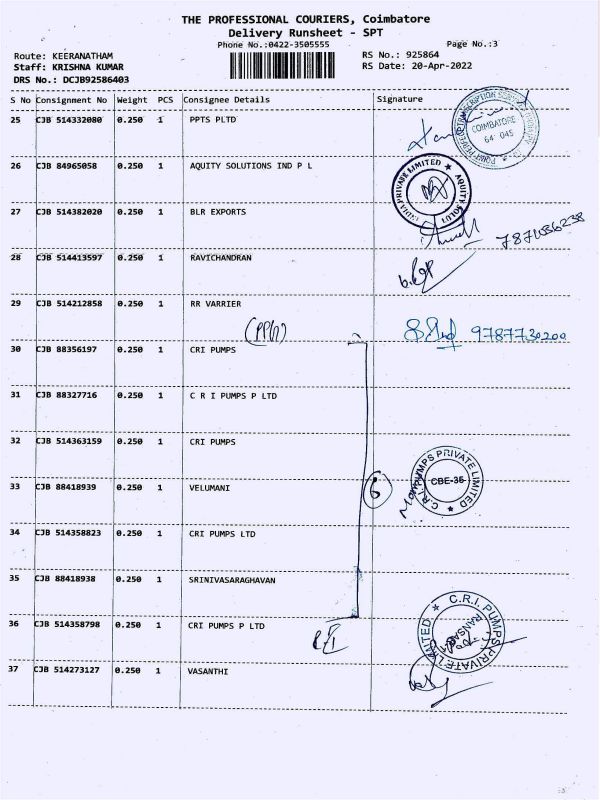 THE PROFESSIONAL COURIERS, Coimbatore
Delivery Runsheet - SPT
Phone No.:0422-3505555 Page No.:3
Route: KEERANATHAM RS No.: 925864
Staff: KRISHNA KUMAR RS Date: 20-Apr-2022
DRS No.: DCJB92586403
S No Consignment No Weight PCS Consignee Details Signature
25 CJB 514332080 0.250 1 PPTS PLTD
COIMBATORE
64 045
26 CJB 84965058 0.250 1 AQUITY SOLUTIONS IND P L
INDIA PRIVATE LIMITED ★ AQUITY SOLUT
27 CJB 514382020 0.250 1 BLR EXPORTS
28 CJB 514413597 0.250 1 RAVICHANDRAN
29 CJB 514212858 0.250 1 RR VARRIER
9787730200
30 CJB 88356197 0.250 1 CRI PUMPS
31 CJB 88327716 0.250 1 C R I PUMPS P LTD
32 CJB 514363159 0.250 1 CRI PUMPS
C.R.I. PUMPS PRIVATE LIMITED ★
CBE-35
33 CJB 88418939 0.250 1 VELUMANI
6
34 CJB 514358823 0.250 1 CRI PUMPS LTD
35 CJB 88418938 0.250 1 SRINIVASARAGHAVAN
36 CJB 514358798 0.250 1 CRI PUMPS P LTD
★ C.R.I. PUMPS PRIVATE LIMITED
37 CJB 514273127 0.250 1 VASANTHI